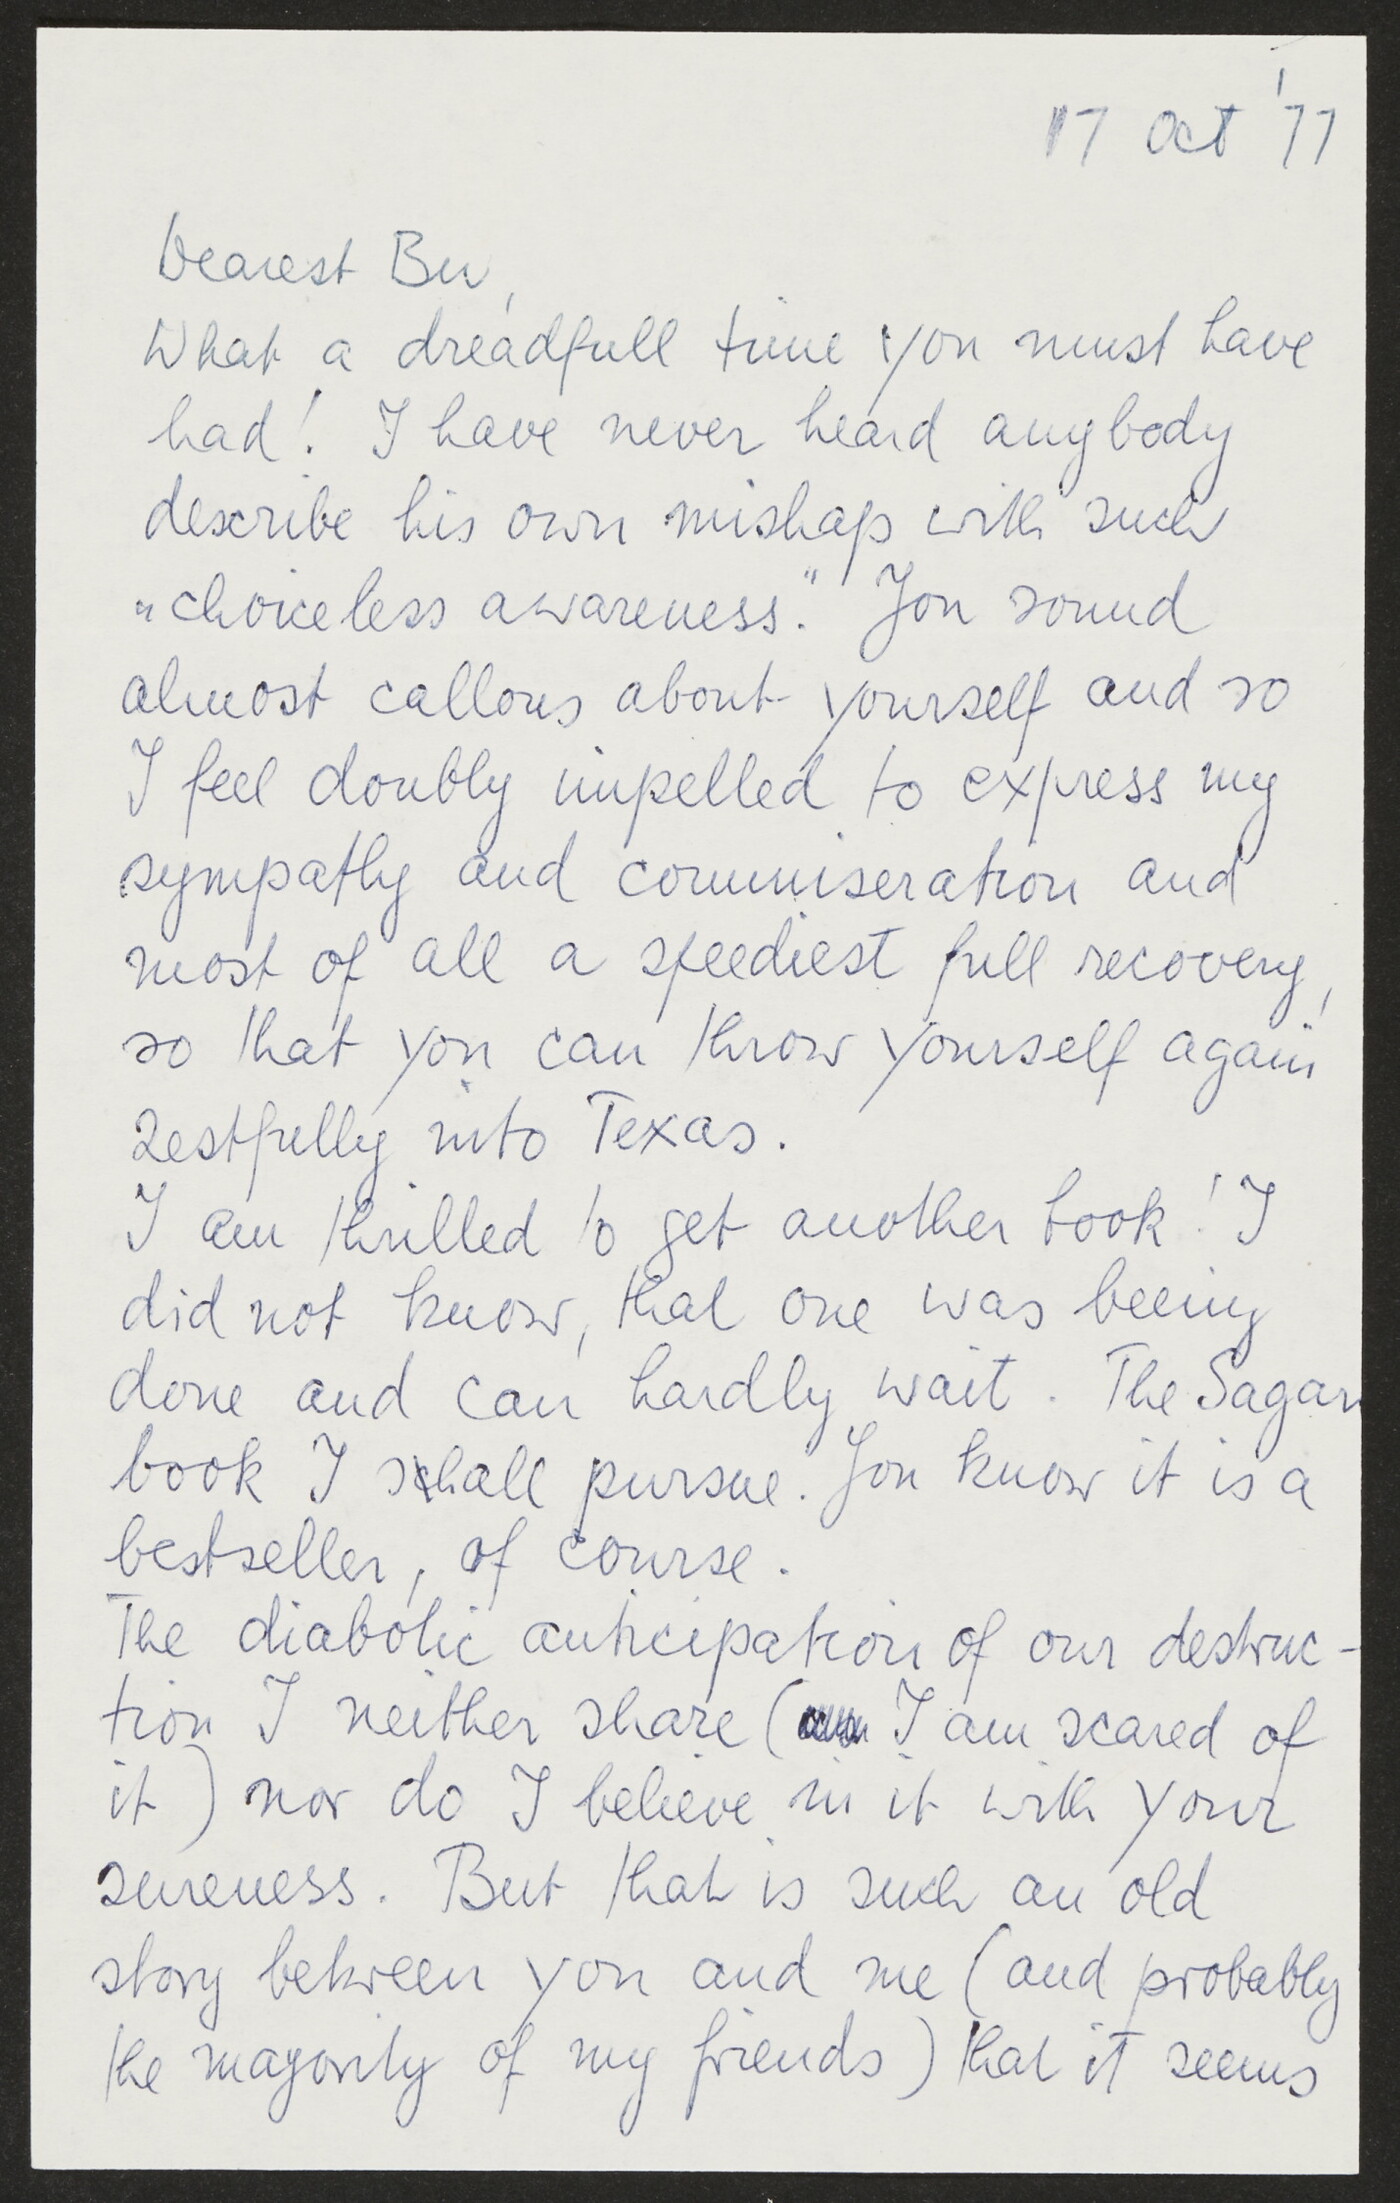 17 Oct '77
Dearest Bu,
What a dreadfull time you must have
had! I have never heard anybody
describe his own mishap with such
„choiceless awareness." You sound
almost callous about yourself and so
I feel doubly impelled to express my
sympathy and commiseration and
most of all a speediest full recovery,
so that you can throw yourself again
zestfully into Texas.
I am thrilled to get another book! I
did not know, that one was beeing
done and can hardly wait. The Sagan
book I shall pursue. You know it is a
bestseller, of course.
The diabolic anticipation of our destruc-
tion I neither share (I am scared of
it) nor do I believe in it with your
sureness. But that is such an old
story between you and me (and probably
the majority of my friends) that it seems